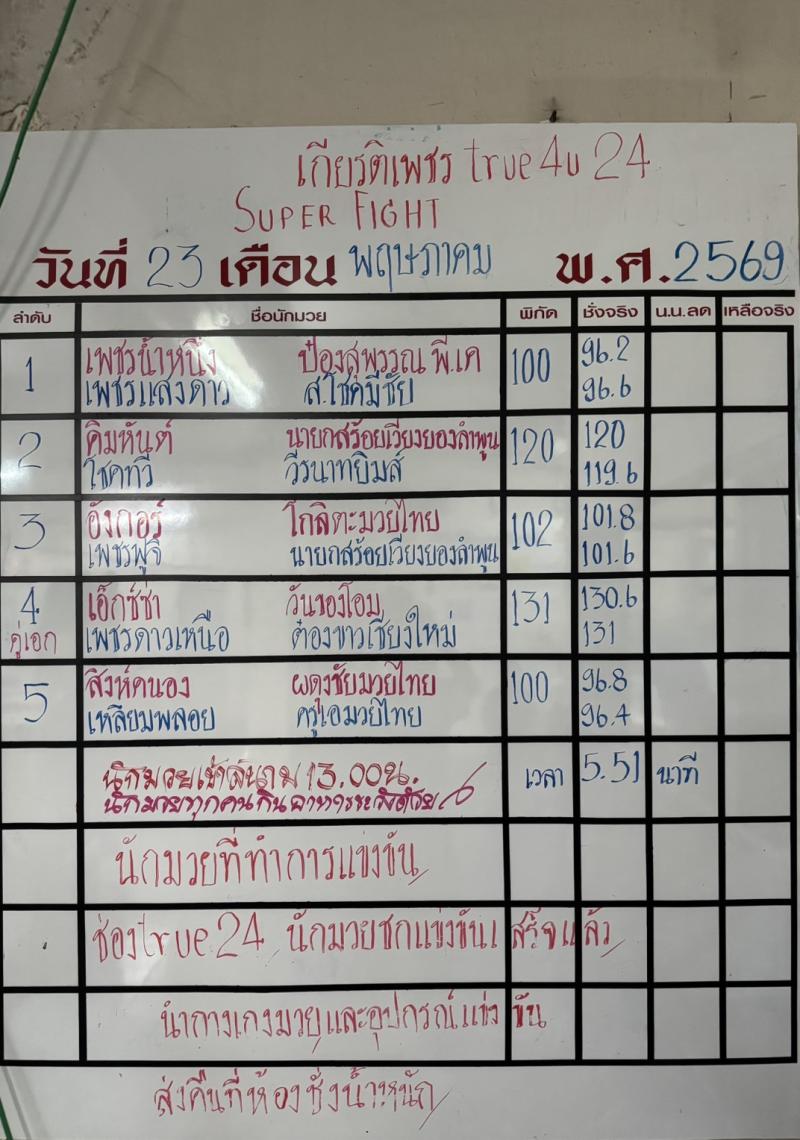 เกียรติเพชร true4u 24
SUPER FIGHT
วันที่ 23 เดือน พฤษภาคม พ.ศ. 2569
ลำดับ ชื่อนักมวย พิกัด ชั่งจริง น.น.ลด เหลือจริง
1 เพชรน้ำหนึ่ง ป๋องสุพรรณ พี.เค 100 96.2
เพชรแสงดาว ส.โชคมีชัย 96.6
2 คิมหันต์ นายกสร้อยเวียงยองลำพูน 120 120
โชคทวี วีรนาทยิมส์ 119.6
3 อังกอร์ โกลิตะมวยไทย 102 101.8
เพชรฟูจิ นายกสร้อยเวียงยองลำพูน 101.6
4 เอ็กซ์ซ่า วันของโอม 131 130.6
คู่เอก เพชรดาวเหนือ ต๋องขาวเชียงใหม่ 131
5 สิงห์คนอง ผดุงชัยมวยไทย 100 96.8
เหลี่ยมพลอย ครูเอมวยไทย 96.4
นักมวยเข้าสนาม 13.00น. เวลา 5.51 นาที
นักมวยทุกคนกินอาหาร
นักมวยที่ทำการแข่งขัน
ช่อง true 24 นักมวยชกแข่งขันเสร็จแล้ว
นำกางเกงมวยและอุปกรณ์แข่งขัน
ส่งคืนที่ห้องชั่งน้ำหนัก